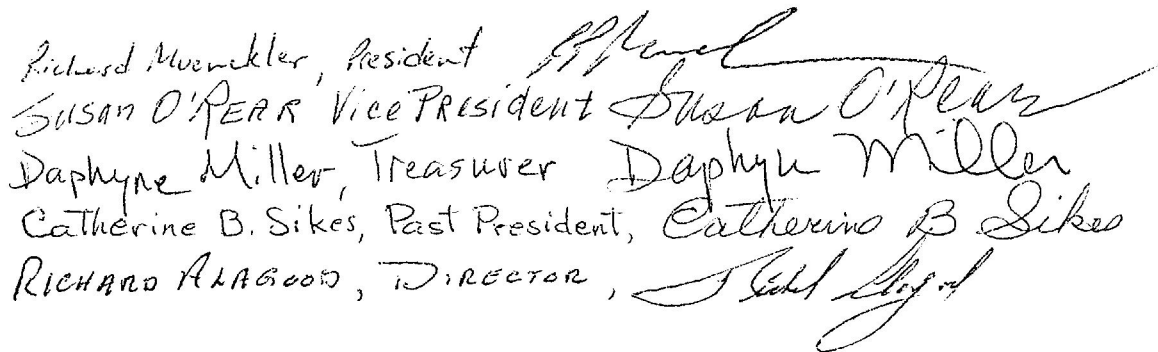 Richard Muenckler, President
Susan O'Rear Vice President Susan O'Rear
Daphyne Miller, Treasurer Daphyn Miller
Catherine B. Sikes, Past President, Catherine B Sikes
RICHARD ALAGOOD, DIRECTOR,